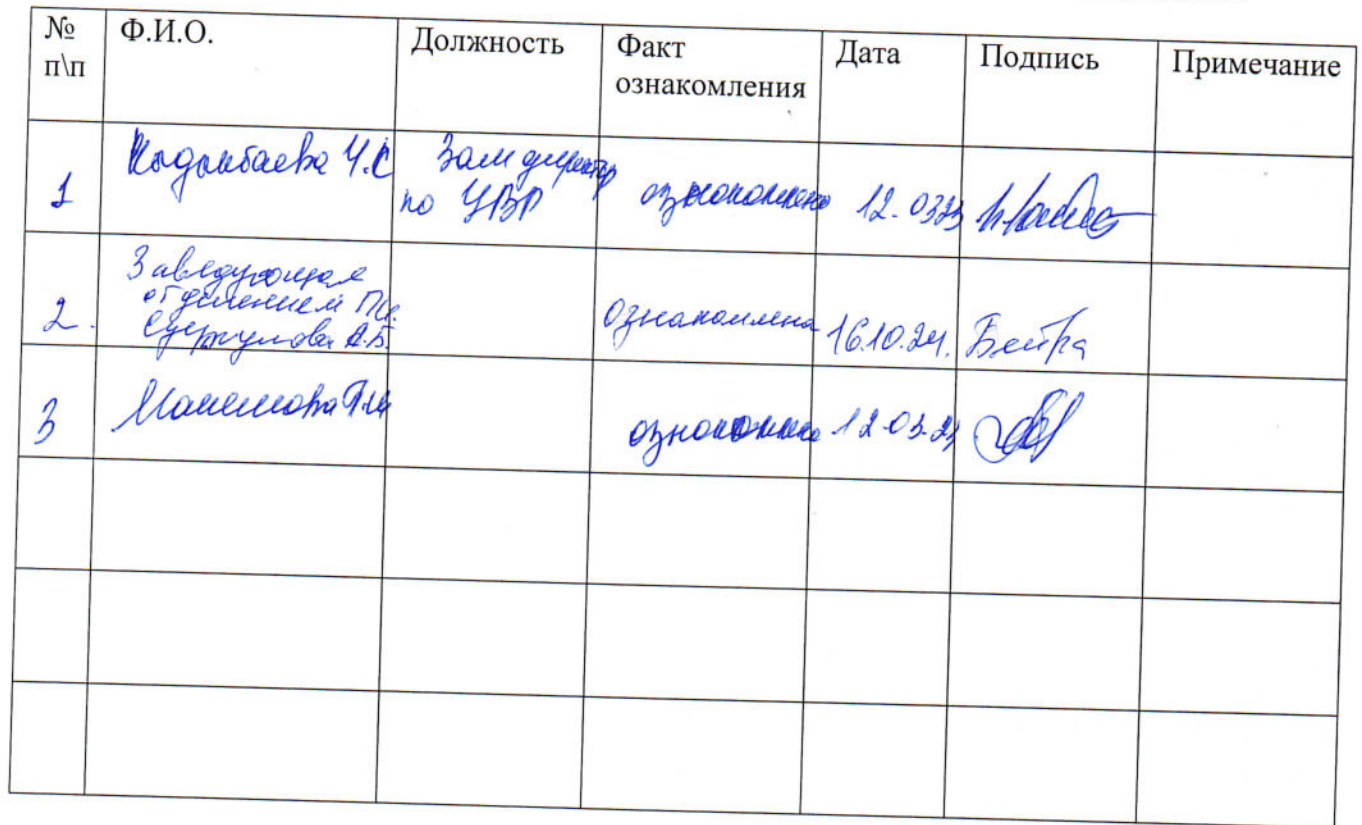 № п\п Ф.И.О. Должность Факт ознакомления Дата Подпись Примечание
1 Кыдынбаева Ч.С Зам директор по УВР ознакомлена 12.03.23
2. Заведующая
отделением
А.Б. ознакомлена 16.10.24.
3 ознакомлена 12.03.23